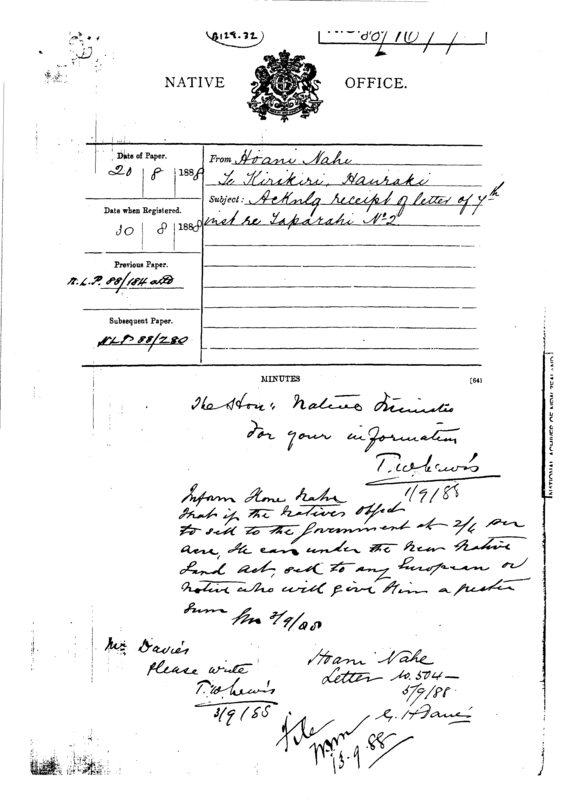 B129.32
88/10
NATIVE OFFICE.
Date of Paper.
20 8 1888
From Hoani Nahe
Te Kirikiri, Hauraki
Subject: Acknlg receipt of letter of 7th
inst re Taparahi No 2
Date when Registered.
30 8 1888
Previous Paper.
N.L.P. 88/184 attd
Subsequent Paper.
NLP 88/280
MINUTES
[64]
The Hon: Native Minister
For your information
T.W. Lewis
1/9/88
Inform Hone Nahe
that if the Natives object
to sell to the Government at 2/6 per
acre, He can under the New Native
Land Act, sell to any European or
Native who will give Him a
sum
3/9/88
Mr Davies
Please write
T.W. Lewis
3/9/88
Hoani Nahe
Letter No. 504 –
5/9/88.
G. H Davies
File
13.9.88
NATIONAL ARCHIVES OF NEW ZEALAND